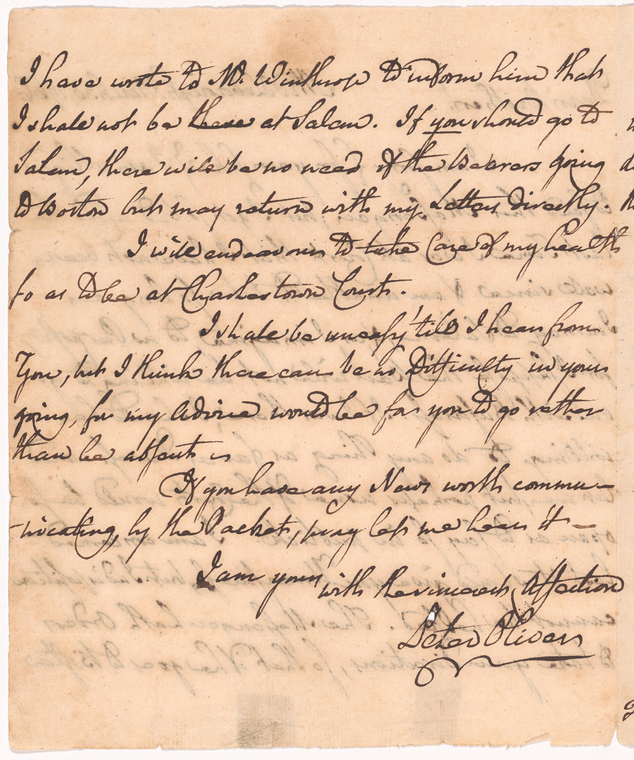 I have wrote to Mr. Winthrop to inform him that
I shall not be there at Salem. If you should go to
Salem, there will be no need of the Bearers going
to Boston but may return with my Letters directly.
I will endeavour to take Care of my health
so as to be at Charlestown Court.
I shall be uneasy 'till I hear from
You, but I think there can be no Difficulty in your
going, for my Advice would be for you to go rather
than be absent
If you have any News worth commu-
-nicating, by the Packet, pray let me hear it
I am yours with the sincerest Affection
Peter Oliver